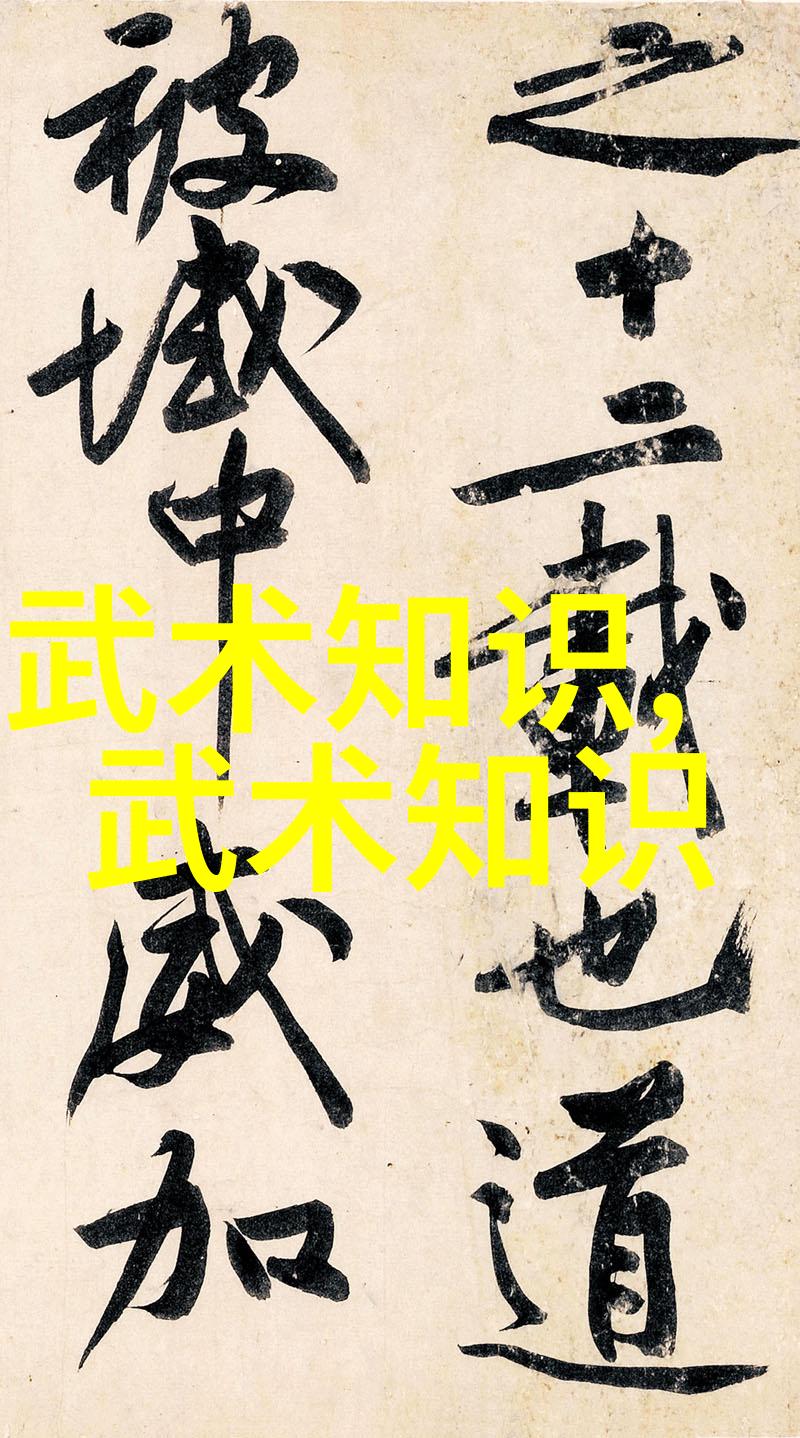 之十二載也道
被域中威加
武术知识,
武术知识